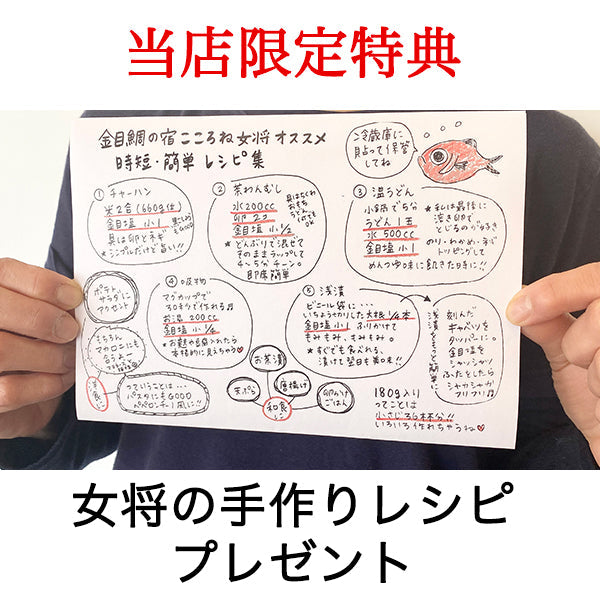 当店限定特典
金目鯛の宿 こころね女将 オススメ
時短・簡単 レシピ集
冷蔵庫に
貼って保管
してね
① チャーハン
米2合(660g位)
金目塩 小1
具は卵とネギ
★シンプルだけど旨い!!
② 茶わんむし
水200cc
卵 2コ
金目塩 小1/2
★どんぶりで混ぜて
そのままラップして
4~5分チーン。
即席簡単
具はちくわ
おもち
うどん
③ 温うどん
小鍋で5分
うどん1玉
水 500cc
金目塩 小1
★私は最後に
溶き卵で
とじるのが好き
のり・わかめ・ネギ
トッピングして
めんつゆ味に飽きた日に!!
④ 吸物
マグカップで
お湯 200cc
金目塩 小1/4
★お麩や三つ葉入れたら
本格的に見えちゃう♡
⑤ 浅漬
ビニール袋に・・・
いちょう切りした大根1/4本
金目塩 小1 ふりかけて
もみもみ、もみもみ。
★すぐでも食べれる、
漬けて翌日も美味!!
刻んだ
キャベツを
タッパーに。
金目塩を
ふたをしたら
シャカシャカ
フリフリ♫
ポテト、
サラダに
アクセント
もちろん
マカロニにも
洋食に
っていうことは・・・
パスタにもGOOD
ペペロンチーノ風に!!
お茶漬
天ぷら
唐揚げ
和食に
卵かけ
ごはん
180g入り
ってことは
小さじ36杯分!!
いろいろ作れちゃうね♡
女将の手作りレシピ
プレゼント